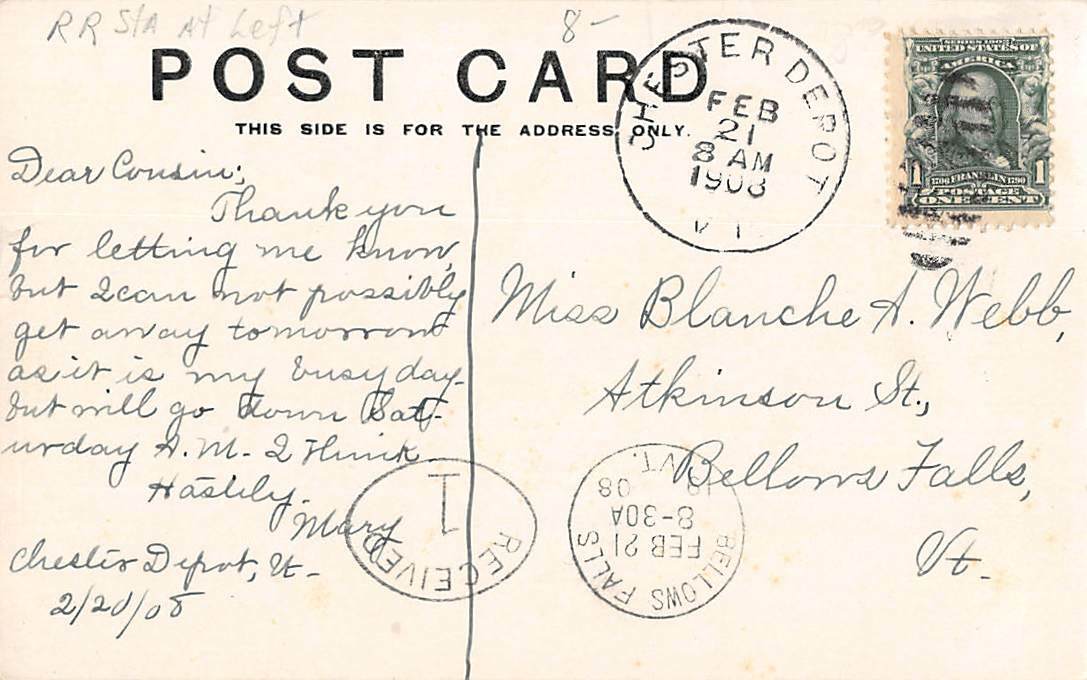 RR Sta At Left
8-
POST CARD
THIS SIDE IS FOR THE ADDRESS ONLY.
CHESTER DEPOT
FEB
21
8 AM
1908
VT.
SERIES 1902
UNITED STATES OF
AMERICA
1706 FRANKLIN 1790
POSTAGE
1 ONE CENT 1
Dear Cousin;
Thank you
for letting me know,
but I can not possibly
get away tomorrow
as it is my busy day-
but will go down Sat-
urday A.M. - I think.
Hastily.
Mary
Chester Depot, Vt-
2/20/08
Miss Blanche A. Webb,
Atkinson St.,
Bellows Falls,
Vt.
RECEIVED
1
BELLOWS FALLS
FEB 21
8-30A
08
VT.